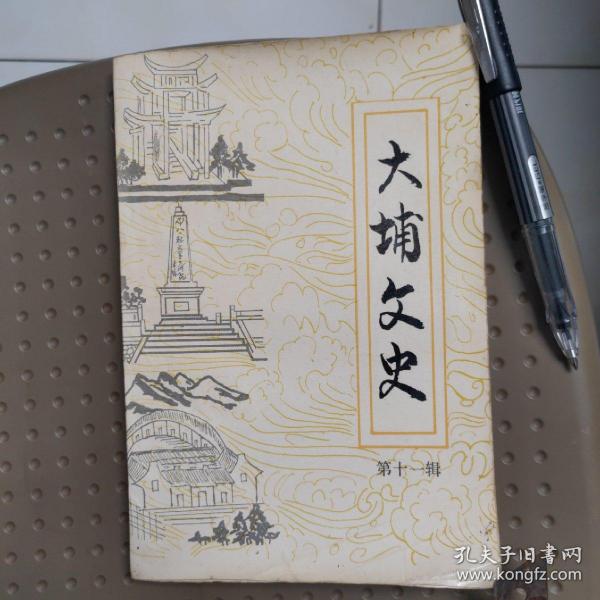 大埔文史
第十一辑
孔夫子旧书网
www.kongfz.com